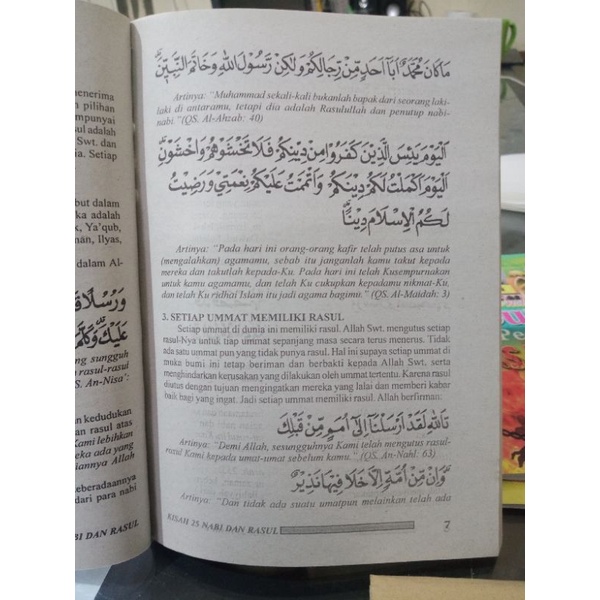 enerima
n pilihan
mpunyai
sul adalah
Swt. dan
ia. Setiap
but dalam
eka adalah
k, Ya'qub,
mān, Ilyas,
dalam Al-
وَرُسُلًا قَ
عَلَيْكَ وَكَلَّمَ
ng sungguh
n rasul-rasul
S. An-Nisa':
an kedudukan
an rasul atas
Kami lebihkan
reka ada yang
iannya Allah
eberadaannya
dari para nabi
BI DAN RASUL
مَا كَانَ مُحَمَّدٌ أَبَآ أَحَدٍ مِّنْ رِّجَالِكُمْ وَلَكِنْ رَّسُوْلَ اللهِ وَخَاتَمَ النَّبِيِّنَ
Artinya: "Muhammad sekali-kali bukanlah bapak dari seorang laki-
laki di antaramu, tetapi dia adalah Rasulullah dan penutup nabi-
nabi." (QS. Al-Ahzab: 40)
اَلْيَوْمَ يَئِسَ الَّذِيْنَ كَفَرُوْا مِنْ دِيْنِكُمْ فَلَا تَخْشَوْهُمْ وَاخْشَوْنِ
اَلْيَوْمَ اَكْمَلْتُ لَكُمْ دِيْنَكُمْ وَاَتْمَمْتُ عَلَيْكُمْ نِعْمَتِيْ وَرَضِيْتُ
لَكُمُ الْاِسْلَامَ دِيْنًا
Artinya: "Pada hari ini orang-orang kafir telah putus asa untuk
(mengalahkan) agamamu, sebab itu janganlah kamu takut kepada
mereka dan takutlah kepada-Ku. Pada hari ini telah Kusempurnakan
untuk kamu agamamu, dan telah Ku cukupkan kepadamu nikmat-Ku,
dan telah Ku ridhai Islam itu jadi agama bagimu." (QS. Al-Maidah: 3)
3. SETIAP UMMAT MEMILIKI RASUL
Setiap ummat di dunia ini memiliki rasul. Allah Swt. mengutus setiap
rasul-Nya untuk tiap ummat sepanjang masa secara terus menerus. Tidak
ada satu ummat pun yang tidak punya rasul. Hal ini supaya setiap ummat di
muka bumi ini tetap beriman dan berbakti kepada Allah Swt, serta
menghindarkan kerusakan yang dilakukan oleh ummat tertentu. Karena rasul
diutus dengan tujuan mengingatkan mereka yang lalai dan memberi kabar
baik bagi yang ingat. Jadi setiap ummat memiliki rasul. Allah berfirman:
تَاللهِ لَقَدْ اَرْسَلْنَا اِلَى اُمَمٍ مِّنْ قَبْلِكَ
Artinya: "Demi Allah, sesungguhnya Kami telah mengutus rasul-
rasul Kami kepada umat-umat sebelum kamu." (QS. An-Nahl. 63)
وَاِنْ مِّنْ اُمَّةٍ اِلَّا خَلَا فِيْهَا نَذِيْرٌ
Artinya: "Dan tidak ada suatu umatpun melainkan telah ada
KISAH 25 NABI DAN RASUL
7